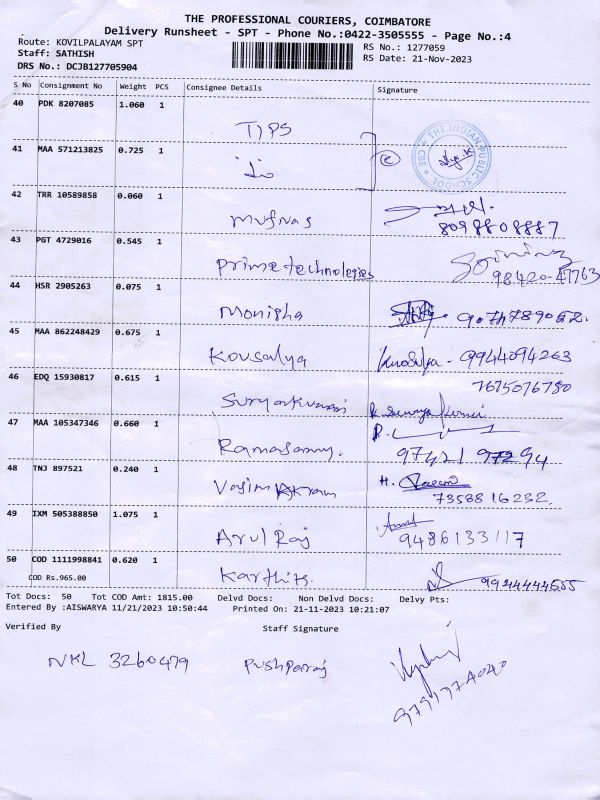 THE PROFESSIONAL COURIERS, COIMBATORE
Delivery Runsheet - SPT - Phone No.:0422-3505555 - Page No.:4
Route: KOVILPALAYAM SPT
RS No.: 1277059
Staff: SATHISH
RS Date: 21-Nov-2023
DRS No.: DCJB127705904
S No Consignment No Weight PCS Consignee Details Signature
40 PDK 8207085 1.060 1
TIPS
THE INDIAN PUBLIC SCHOOL
CBE
41 MAA 571213825 0.725 1
42 TRR 10589858 0.060 1
Mufnas
8098808887
43 PGT 4729016 0.545 1
Prime technologies
98420 47763
44 HSR 2905263 0.075 1
Monisha
9074789052.
45 MAA 862248429 0.675 1
Kousalya Kousalya - 9944094263
46 EDQ 15930817 0.615 1
7675076780
Suryakumari
47 MAA 105347346 0.660 1
Ramasamy.
97421 97294
48 TNJ 897521 0.240 1
Vasim Akram
7358816232
49 IXM 505388850 1.075 1
Arul Raj 9486133117
50 COD 1111998841 0.620 1
COD Rs.965.00 Karthik. 9944444555
Tot Docs: 50 Tot COD Amt: 1815.00 Delvd Docs: Non Delvd Docs: Delvy Pts:
Entered By :AISWARYA 11/21/2023 10:50:44 Printed On: 21-11-2023 10:21:07
Verified By Staff Signature
NKL 3260479 Pushparaj